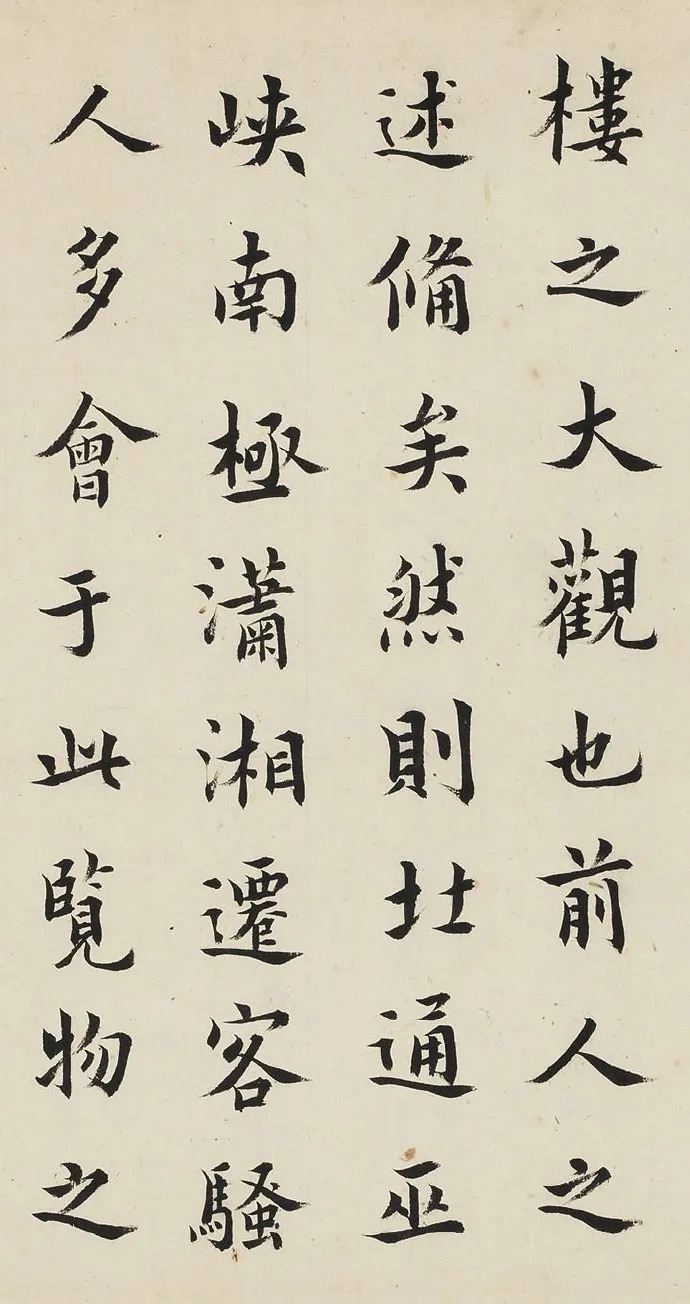 樓之大觀也前人之
述備矣然則北通巫
峽南極瀟湘遷客騷
人多會于此覽物之